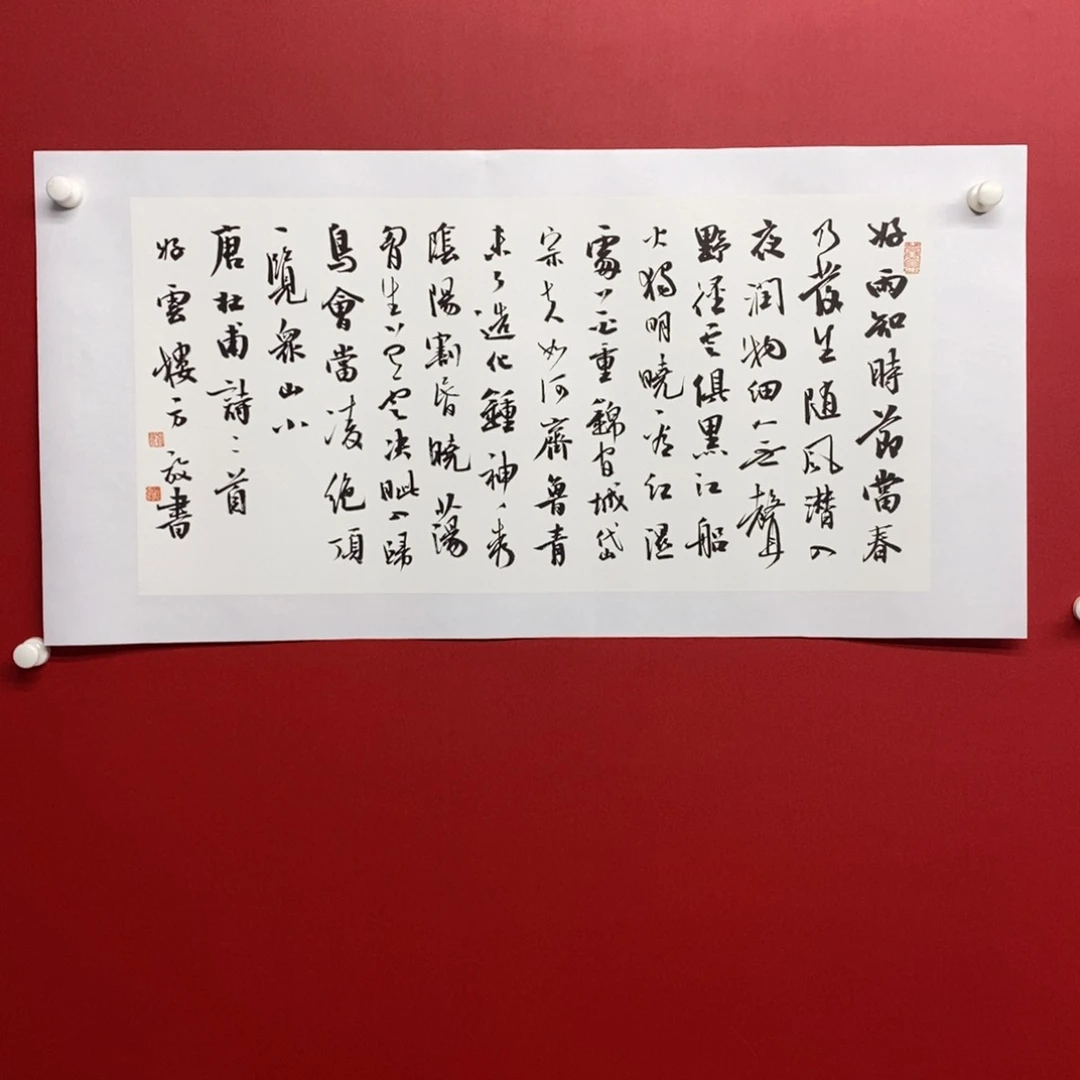 好雨知時節當春
乃發生随風潜入
夜润物细无聲
野徑雲俱黑江船
火獨明曉看红濕
處花重錦官城岱
宗夫如何齊魯青
未了造化鍾神秀
陰陽割昏曉蕩
胷生曾雲决眦入歸
鳥會當凌絶頂
一覽衆山小
唐杜甫詩二首
好雲樓方放書